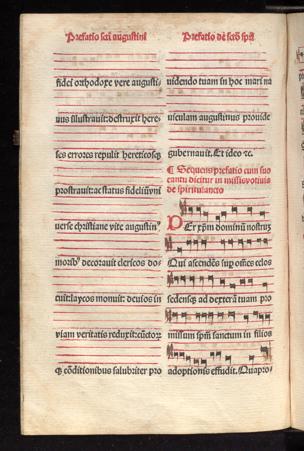 Prefatio scti augustini
fidei orthodoxe vere augusti-
nus illustrauit: destruxit here-
ses errores repulit hereticosq3
prostrauit: ac status fidelium ni
uerse christiane vite augustin9
morib9 decorauit clericos do-
cuit: laycos monuit: deuios in
viam veritatis reduxit: cunctorum
q3 conditionibus salubriter pro
Prefatio de scto spu
uidendo tuam in hoc mari na
uiculam augustinus prouide
gubernauit. Et ideo zc.
¶ Sequens prefatio cum suo
cantu dicitur in missis votiuis
de spiritu sancto
PEr xpm dominum nostrum
Qui ascendens sup omnes celos
sedensq3 ad dexteram tuam pro
missum spm sanctum in filios
adoptionis effudit. Quapro-